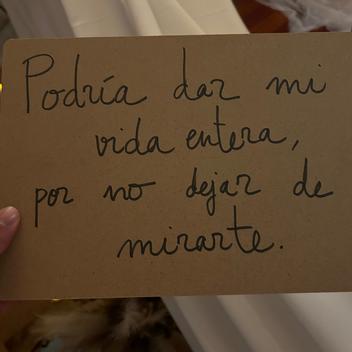 Podría dar mi
vida entera,
por no dejar de
mirarte.